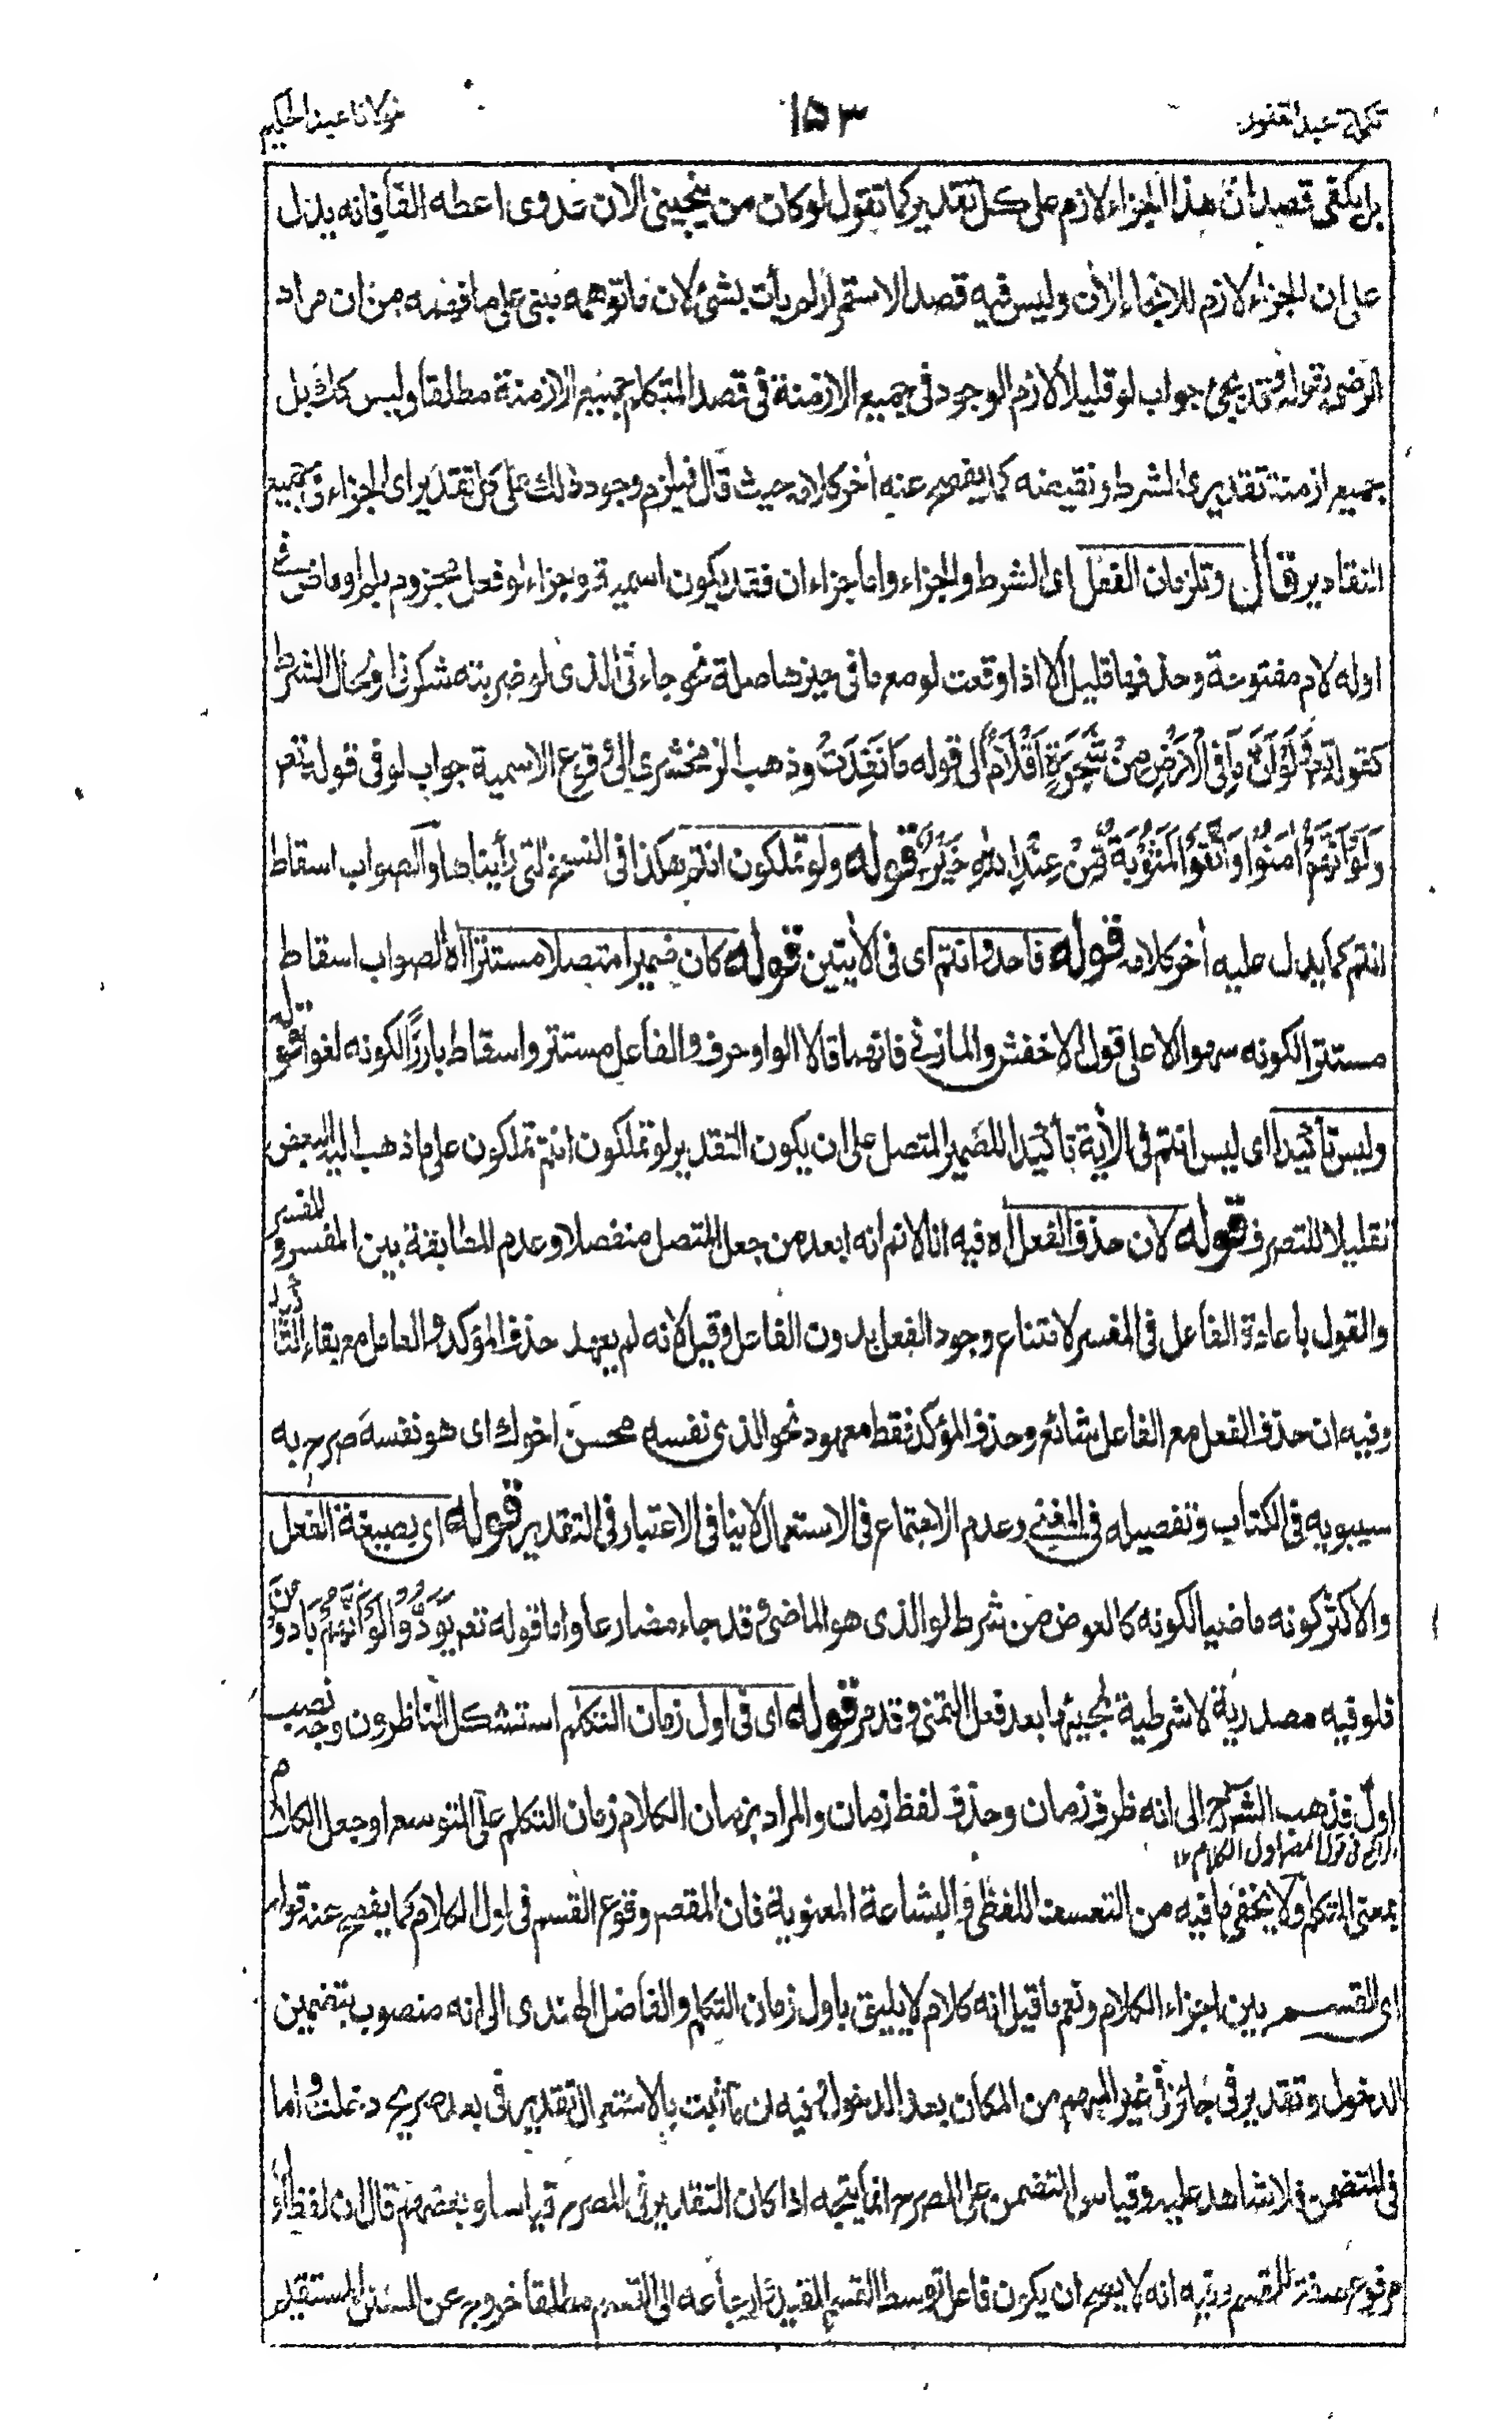 تكملة عبد الغفور
١٥٣
مولانا عبد الحكيم
بل يكفى قصد ان هذا الجزاء لازم على كل تقدير كما تقول لو كان من يجيئنى الان عدوى اعطه الفا فانه يدل
على ان الجزاء لازم للمجئ الان وليس فيه قصد الاستمرار لم يأت بشئ لان ما توهمه مبنى على ما فهمه من ان مراد
الرضى بقوله وقد يجئ جواب لو قليلا لازم الوجود فى جميع الازمنة فى قصد المتكلم جميع الازمنة مطلقا وليس كذلك بل
جميع ازمنة تقديرى الشرط ونقيضه كما يفصح عنه أخر كلامه حيث قال فيلزم وجود ذلك على كل تقدير اى الجزاء فى جميع
التقادير قال وتلزمان الفعل اى الشرط والجزاء واما جزاء ان فقد يكون اسمية وجزاء لو فعل مجزوم بلم او ماض فى
اوله لام مفتوحة وحذفها قليل الا اذا وقعت لو مع ما فى حيزها صلة نحو جاءنى الذى لو ضربته شكرنى او طال الشرط
كقوله تعالى وَلَوْ أَنَّ مَا فِى الْأَرْضِ مِنْ شَجَرَةٍ أَقْلَامٌ الى قوله مَا نَفِدَتْ وذهب الزمخشرى الى وقوع الاسمية جواب لو فى قوله تعم
وَلَوْ أَنَّهُمْ اٰمَنُوا وَاتَّقَوْا لَمَثُوبَةٌ مِّنْ عِنْدِ اللهِ خَيْرٌ قوله ولو تملكون انتم هكذا فى النسخ التى رأيناها والصواب اسقاط
انتم كما يدل عليه أخر كلامه قوله فاحد وانتم اى فى الأيتين قوله كان ضميرا متصلا مستترا اه الصواب اسقاط
مستترا لكونه سهوا الا على قول الاخفش والمازنى فانهما قالا الواو حرف والفاعل مستتر واسقاط بارزًا لكونه لغوا قوله
وليس تأكيدا اى ليس انتم فى الأية تأكيدا للضمير المتصل على ان يكون التقدير لو تملكون انتم تملكون على ما ذهب اليه البعض
تقليلا للتصرف قوله لان حذف الفعل اه فيه انا لانم انه ابعد من جعل المتصل منفصلا وعدم المطابقة بين المفسر والمفسر
والقول باعادة الفاعل فى المفسر لامتناع وجود الفعل بدون الفاعل وقيل لانه لم يعهد حذف المؤكد والعامل مع بقاء التاكيد
وفيه ان حذف الفعل مع الفاعل شائع وحذف المؤكد فقط معهود نحو الذى نفسه محسن اخوك اى هو نفسه صرح به
سيبويه فى الكتاب وتفصيله فى المغنى وعدم الاجتماع فى الاستعمال لاينافى الاعتبار فى التقدير قوله اى بصيغة الفعل
والاكثر كونه ماضيا لكونه كالعوض من شرط لو الذى هو الماضى وقد جاء مضارعا واما قوله تعم يَوَدُّوا لَوْ أَنَّهُمْ بَادُونَ
فلو فيه مصدرية لا شرطية لمجيئها بعد فعل التمنى وقد مر قوله اى فى اول زمان التكلم استشكل الناظرون وجه نصب
اول فذهب الشرح الى انه ظرف زمان وحذف لفظ زمان والمراد بزمان الكلام زمان التكلم على التوسع او جعل الكلام
اى فى قول المص اول الكلام ١٢
بمعنى التكلم ولا يخفى ما فيه من التعسف اللفظى والبشاعة المعنوية فان المقصد وقوع القسم فى اول الكلام كما يفصح عنه قوله
اى القسم بين اجزاء الكلام ونعم ما قيل انه كلام لا يليق باول زمان التكلم والفاضل الهندى الى انه منصوب بتضمين
الدخول وتقدير فى جائز فى غير المبهم من المكان بعد الدخول وفيه ان ما ثبت بالاستعمال تقدير فى بعد صريح دخلت واما
فى المتضمن فلا شاهد عليه وقياس المتضمن على المصرح انما يتجه اذا كان التقدير فى المصرح قياسا وبعضهم قال ان لفظ اول
مرفوع صفة للقسم وفيه انه لا يصح ان يكون فاعل توسط القسم المقيد وارجاعه الى القسم مطلقا خروج عن السنن المستقيم